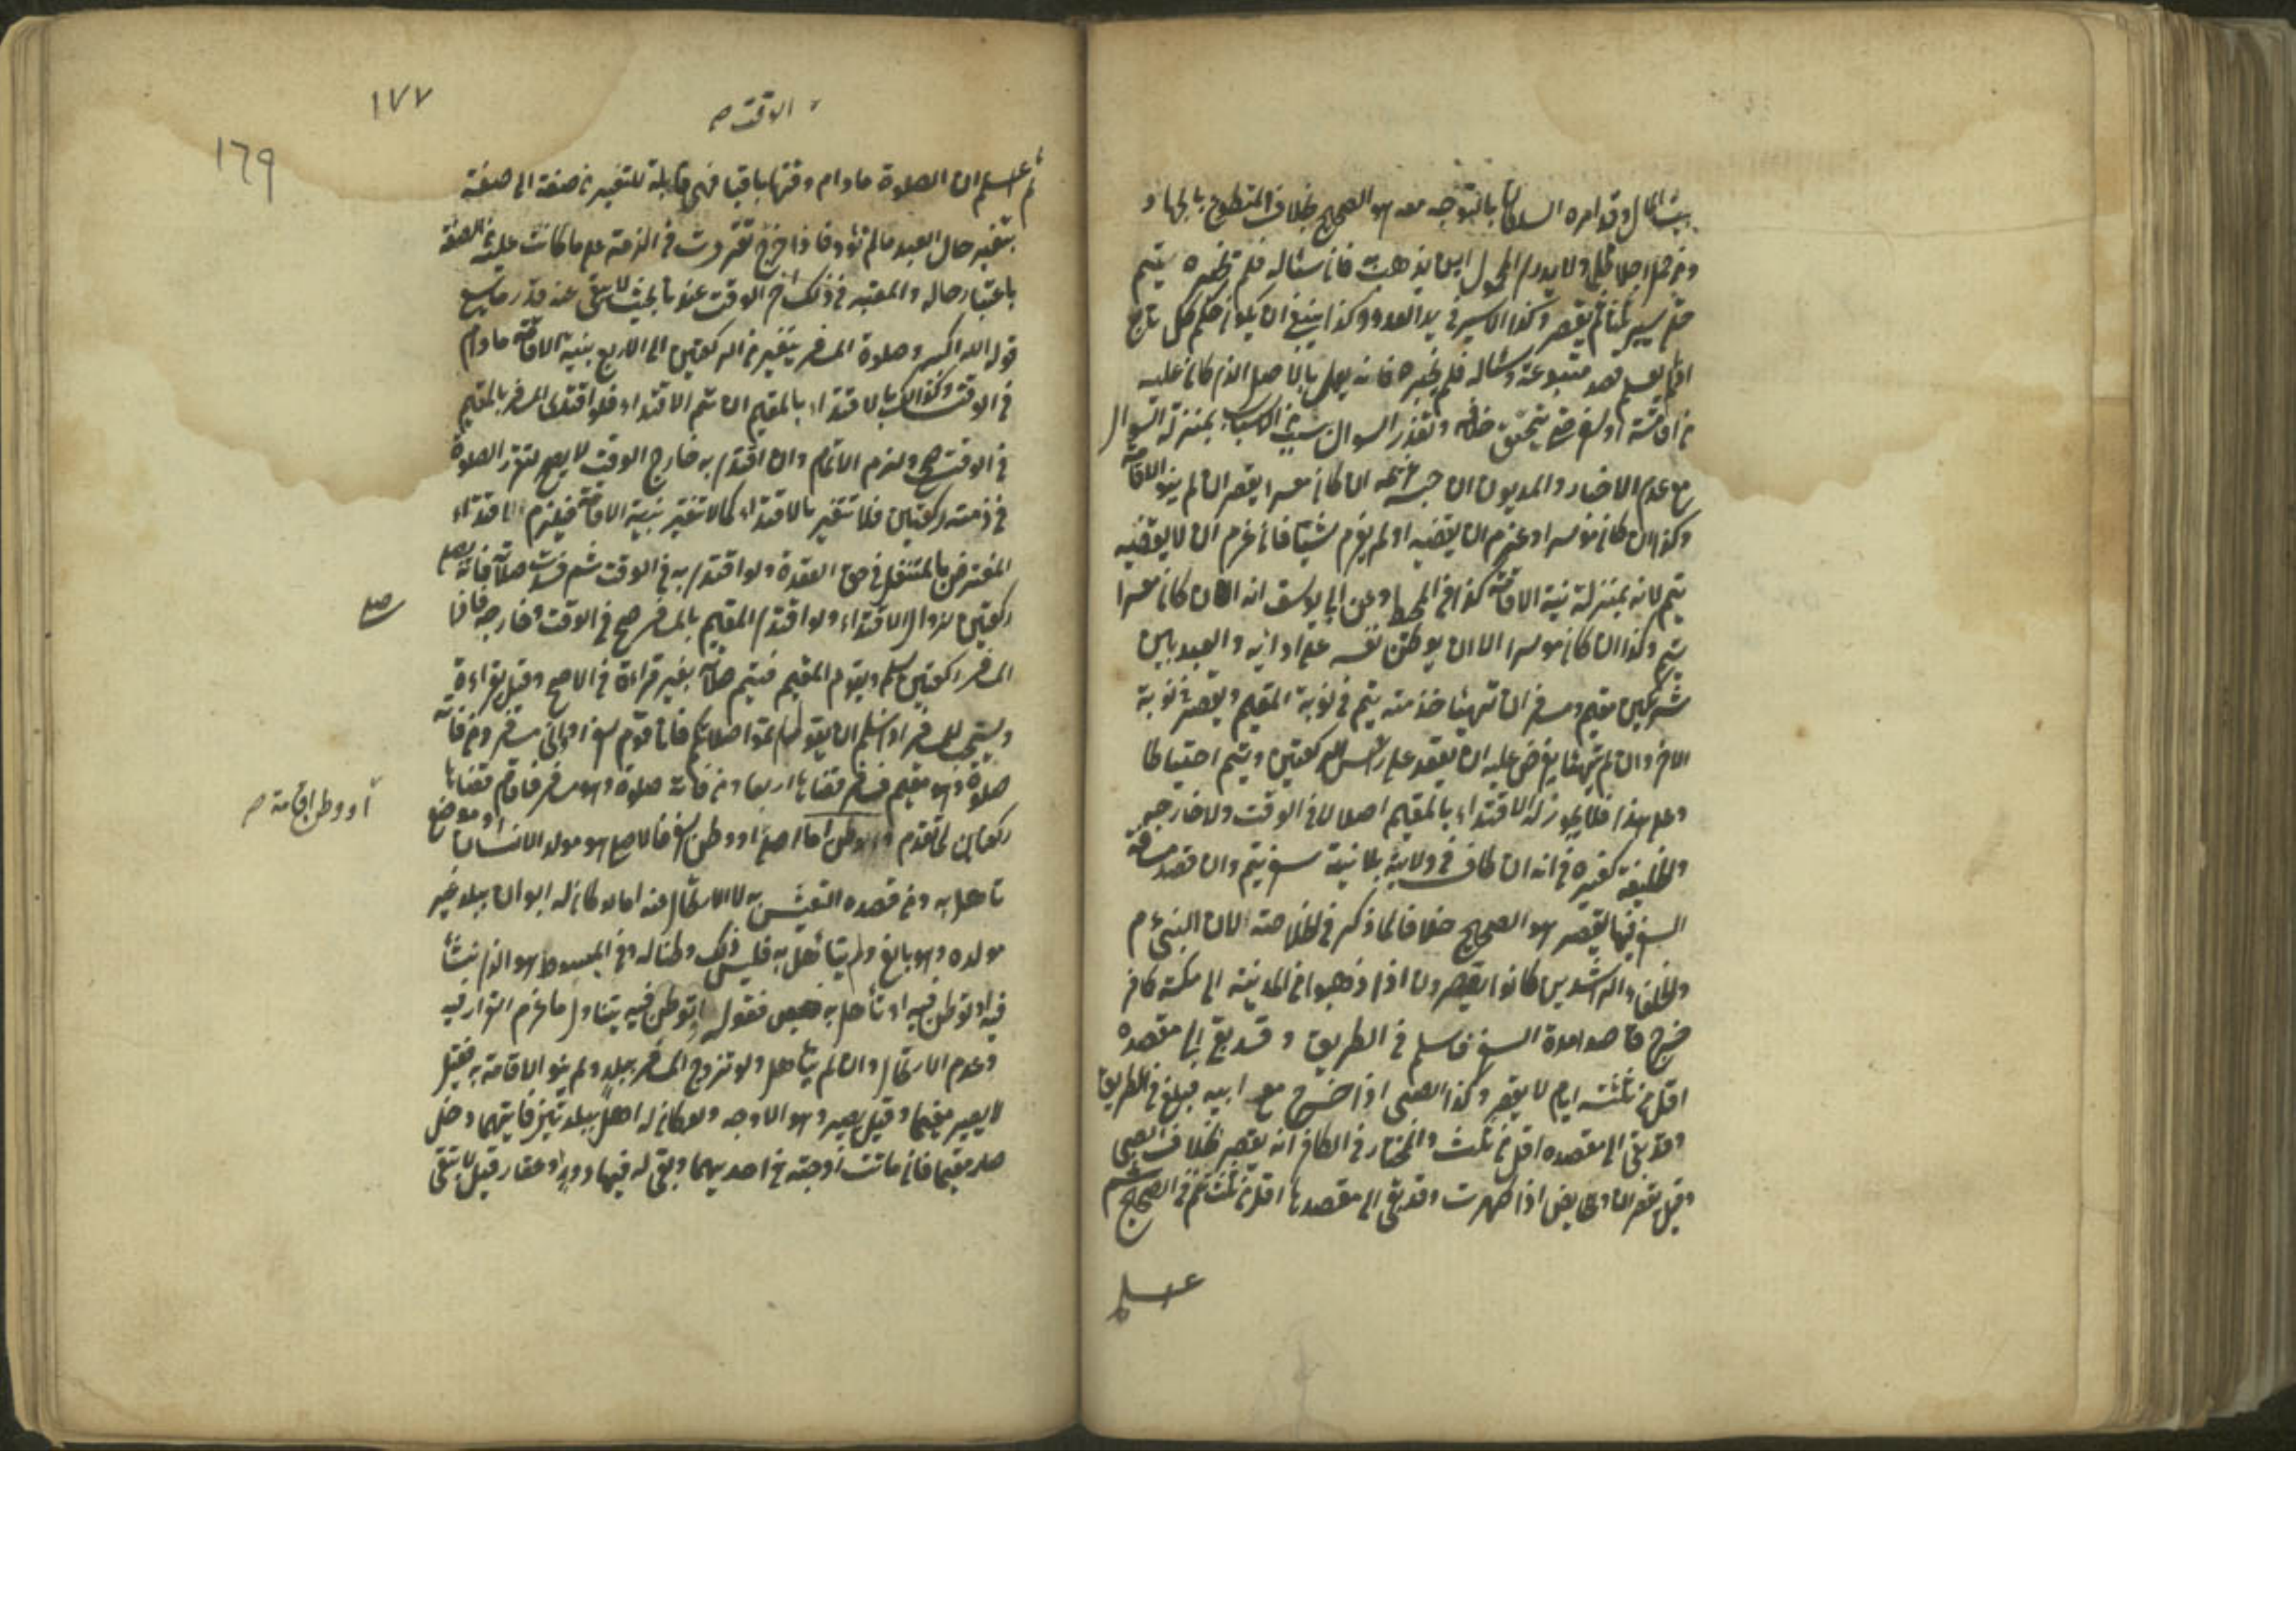 بيت المال وقد امره السلطان بالتوجه معه هو الصحيح بخلاف المتطوع بالجهاد و
ومن حمل رجلا ظلما ولا يدرى المحمول اين يذهب به فان سئاله فلم يخبره يتم
حتى يسير ثلثا ثم يقصر وكذا الاسير فى يد العدو وكذا ينبغى ان يكون حكم كل تابع
اذا لم يعلم قصد متبوعه وسئاله فلم يخبره فانه يعمل بالاصل الذى كان عليه
من اقامته او سفر حتى يتحقق خلافه وتعذر السوال بسبب من الاسباب بمنزلة السوال
مع عدم الاخبار والمديون ان حبسه غريمه ان كان معسرا يقصر ان لم ينو الاقامة
وكذا ان كان موسرا وعزم ان يقضيه او لم يعزم شيئا فان عزم ان لا يقضيه
يتم لانه بمنزلة نية الاقامة كذا فى المحيط وعن ابى يوسف انه ان كان معسرا
يتم وكذا ان كان موسرا الا ان يوطن نفسه على ادائه والعبد بين
شريكين مقيم ومسافر ان تهيئا خدمته يتم فى نوبة المقيم ويقصر فى نوبة
الاخر وان لم يتهيئا يفرض عليه ان يقعد على راس الركعتين ويتم احتياطا
وعلى هذا فلا يجوز له الاقتداء بالمقيم اصلا لا فى الوقت ولا خارجه
والخليفة كغيره فى انه ان طاف فى ولايته بلا نية سفر يتم وان قصد مسافة
السفر فيها يقصر هو الصحيح خلافا لما ذكر فى الخلاصة لان النبى ءم
والخلفاء الراشدين كانوا يقصرون اذا ذهبوا من المدينة الى مكة كافر
خرج قاصدا مدة السفر فاسلم فى الطريق وقد بقى الى مقصده
اقل من ثلثة ايام لا يقصر وكذا الصبى اذا خرج مع ابيه فبلغ فى الطريق
وقد بقى الى مقصده اقل من ثلث والمختار فى الكافر انه يقصر بخلاف الصبى
وقيل يقصران والحايض اذا طهرت وقد بقى الى مقصدها اقل من ثلث تتم فى الصحيح
اعلم
١٧٧
١٦٩
الوقت صح
ثم اعلم ان الصلوة مادام وقتها باقيا فهى قابلة للتغير من صفة الى صفة
بتغير حال العبد ما لم تؤد فاذا خرج تقررت فى الذمة على ما كانت عليه من الصفة
باعتبار حاله والمعتبر فى ذلك اخر الوقت عندنا بحيث لا يبقى عنه قدر ما يسع
قوله الله اكبر وصلوة المسافر يتغير من الركعتين الى الاربع بنية الاقامة مادام
فى الوقت وكذلك بالاقتداء بالمقيم ان تم الاقتداء فلو اقتدى المسافر بالمقيم
فى الوقت صح ولزم الاتمام وان اقتدى به خارج الوقت لا يصح لتقرر الصلوة
فى ذمته ركعتين فلا تتغير بالاقتداء كما لا تتغير بنية الاقامة فيلزم اقتداء
المفترض بالمتنفل فى حق القعدة ولو اقتدى به فى الوقت ثم فسدت صلاته فانه يصلى
صلى
ركعتين لزوال الاقتداء ولو اقتدى المقيم بالمسافر صح فى الوقت وخارجه فاذا
المسافر ركعتين سلم ويقوم المقيم فيتم صلاته بغير قراءة فى الاصح وقيل بقراءة
ويستحب للمسافر اذا سلم ان يقول لهم اتموا صلاتكم فانا قوم سفر او انى مسافر ومن فاتته
صلوة وهو مقيم فسافر قضاها اربعا ومن فاتته صلوة وهو مسافر فاقام قضاها
او وطن اقامة صح
ركعتين لما تقدم والوطن اما اصلى او وطن سفر فالاصلى هو مولد الانسان او موضع
تاهل به ومن قصده التعيش به لا الارتحال عنه اما لو كان له ابوان ببلد غير
مولده وهو بالغ ولم يتاهل به فليس ذلك وطنا له وفى المبسوط هو الذى نشأ
فيه او توطن فيه او تأهل به فقوله او توطن فيه يتناول ما عزم القرار فيه
وعدم الارتحال وان لم يتأهل ولو تزوج المسافر ببلد ولم ينو الاقامة به فقيل
لا يصير مقيما وقيل يصير وهو الاوجه ولو كان له اهل ببلدتين فايتهما دخل
صار مقيما فان ماتت زوجته فى احديهما وبقى له فيها دور وعقار قيل لا تبقى